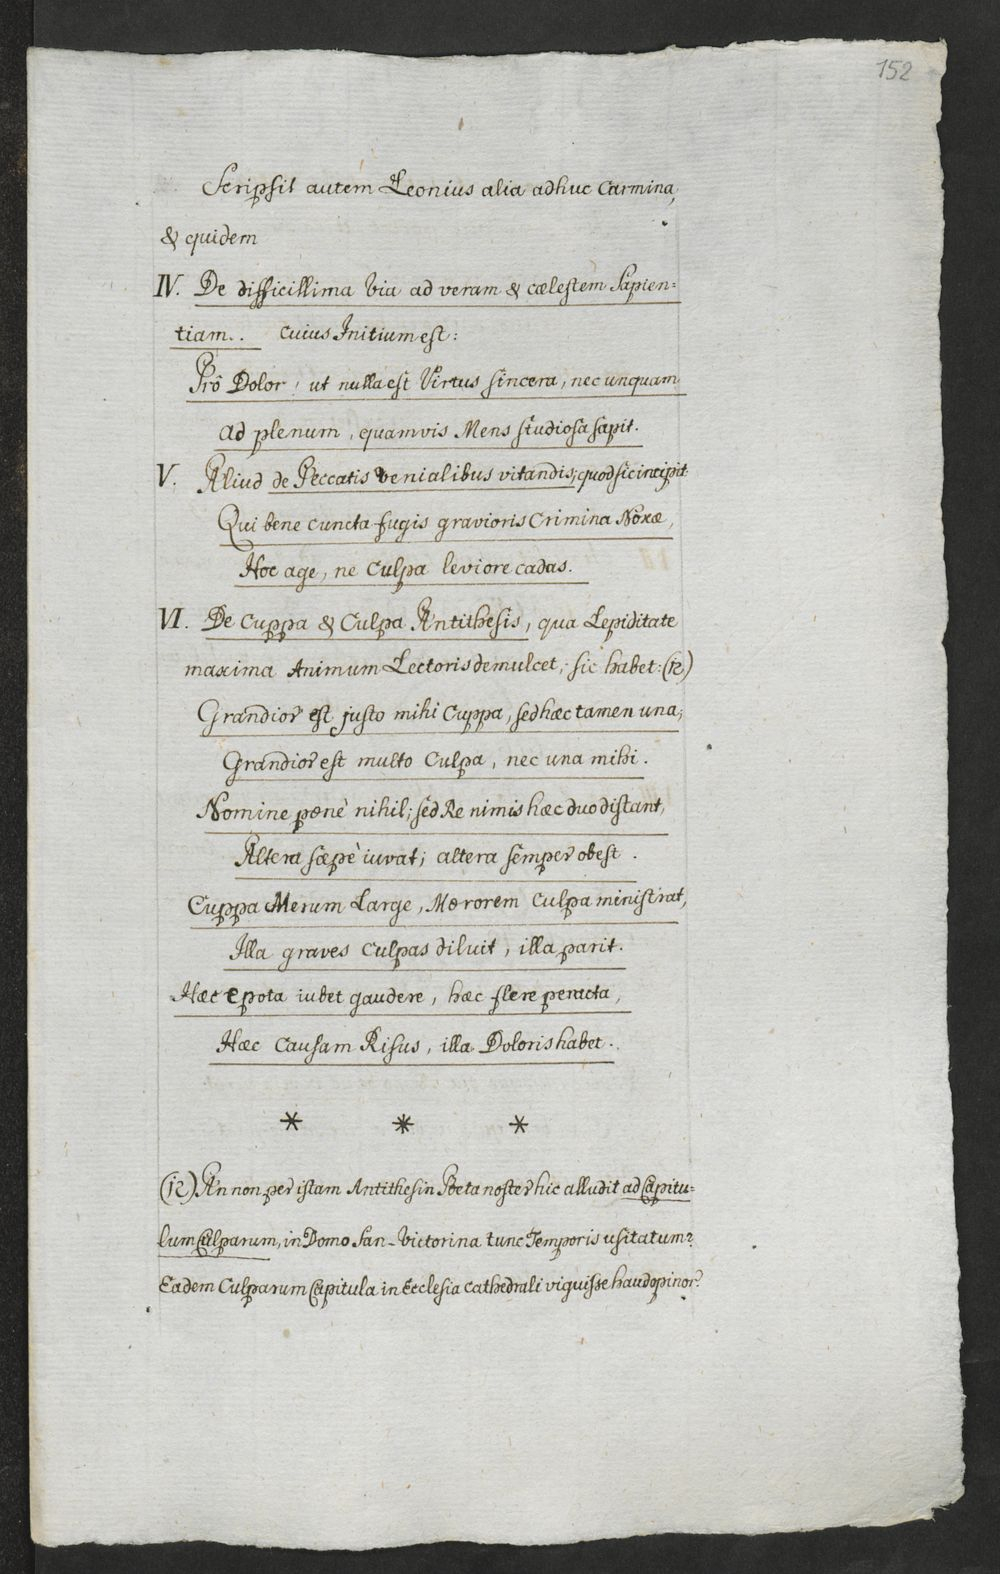 152
Scripsit autem Leonius alia adhuc Carmina,
& equidem
IV. De difficillima Via ad veram & cælestem Sapien=
tiam.. cuius Initium est:
Prô Dolor! ut nulla est Virtus sincera, nec unquam
ad plenum, quamvis Mens studiosa sapit.
V. Aliud de Peccatis venialibus vitandis; quod sic incipit:
Qui bene cuncta fugis gravioris Crimina Noxæ,
Hoc age, ne Culpa leviore cadas.
VI. De Cuppa & Culpa Antithesis, qua Lepiditate
maxima Animum Lectoris demulcet; sic habet: (12)
Grandior est justo mihi Cuppa, sed hæc tamen una;
Grandior est multo Culpa, nec una mihi.
Nomine pœnè nihil; sed Re nimis hæc duo distant,
Altera sæpè iuvat; altera semper obest.
Cuppa Merum Large, Mœrorem Culpa ministrat,
Illa graves Culpas diluit, illa parit.
Hæc epota iubet gaudere, hæc flere peracta,
Hæc Causam Risus, illa Doloris habet.
* * *
(12) An non per istam Antithesin Poeta noster hic alludit ad Capitu=
lum Culparum, in Domo San-Victorina tunc Temporis usitatum?
Eadem Culparum Capitula in Ecclesia Cathedrali viguisse haud opinor.